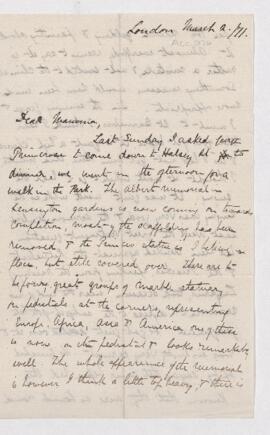 London March 2./71.
Dear Mamma,
Last Sunday I asked
Primrose to come down to Halsey St to
dinner, we went in the afternoon for a
walk in the Park. The Albert memorial in
Kensington gardens is coming on towards
completion, most of the scaffolding has been
removed, & the Princes statue is in
place, but still covered over. There are to
be four great groups of marble statues
on pedestals, at the corners, representing
Europe, Africa, Asia & America, one of these
is now on the pedestal & looks remarkably
well. The whole appearance of the memorial
is however I think a little top heavy, & there is